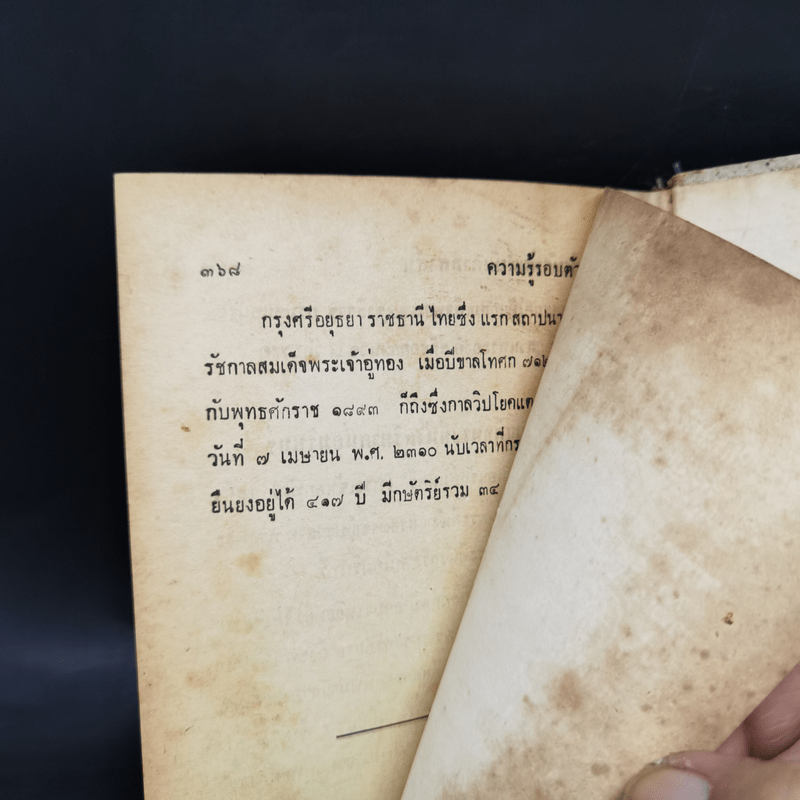 ๓๖๘ ความรู้รอบตัว
กรุงศรีอยุธยา ราชธานี ไทยซึ่ง แรก สถาปนา
รัชกาลสมเด็จพระเจ้าอู่ทอง เมื่อปีขาลโทศก ๗๑๒
กับพุทธศักราช ๑๘๙๓ ก็ถึงซึ่งกาลวิปโยคแต
วันที่ ๗ เมษายน พ.ศ. ๒๓๑๐ นับเวลาที่กร
ยืนยงอยู่ได้ ๔๑๗ ปี มีกษัตริย์รวม ๓๔